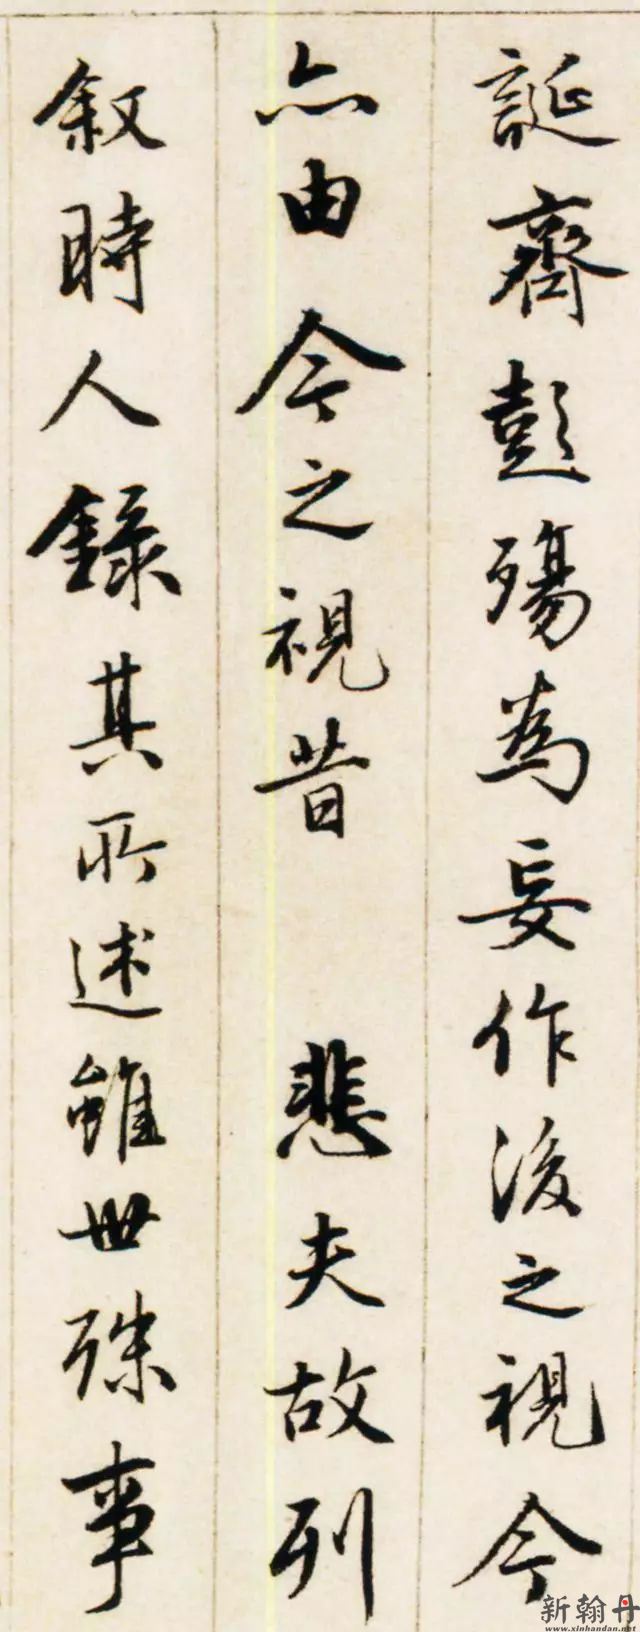 誕齊彭殤為妄作後之視今
亦由今之視昔 悲夫故列
敘時人錄其所述雖世殊事
新翰丹
www.xinhandan.net